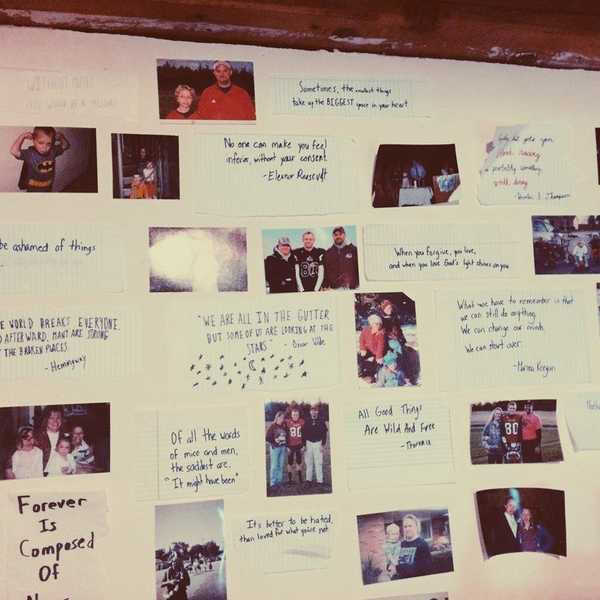 WITHOUT
Sometimes, the smallest things
take up the BIGGEST space in your heart
No one can make you feel
inferior, without your consent.
-Eleanor Roosevelt
Anything that gets your
blood racing
is probably something
worth doing.
-Hunter S. Thompson
be ashamed of things
When you forgive, you love,
and when you love God's light shines on you
E WORLD BREAKS EVERYONE,
D AFTERWARD, MANY ARE STRONG
T THE BROKEN PLACES
- Hemingway
"WE ARE ALL IN THE GUTTER
BUT SOME OF US ARE LOOKING AT THE
STARS" - Oscar Wilde
What we have to remember is that
we can still do anything.
We can change our minds.
We can start over.
-Marina Keegan
Of all the words
of mice and men,
the saddest are,
"It might have been"
80
80
80
All Good Things
Are Wild And Free
-Thoreau
Forever
Is
Composed
Of
It's better to be hated,
than loved for what you're not.